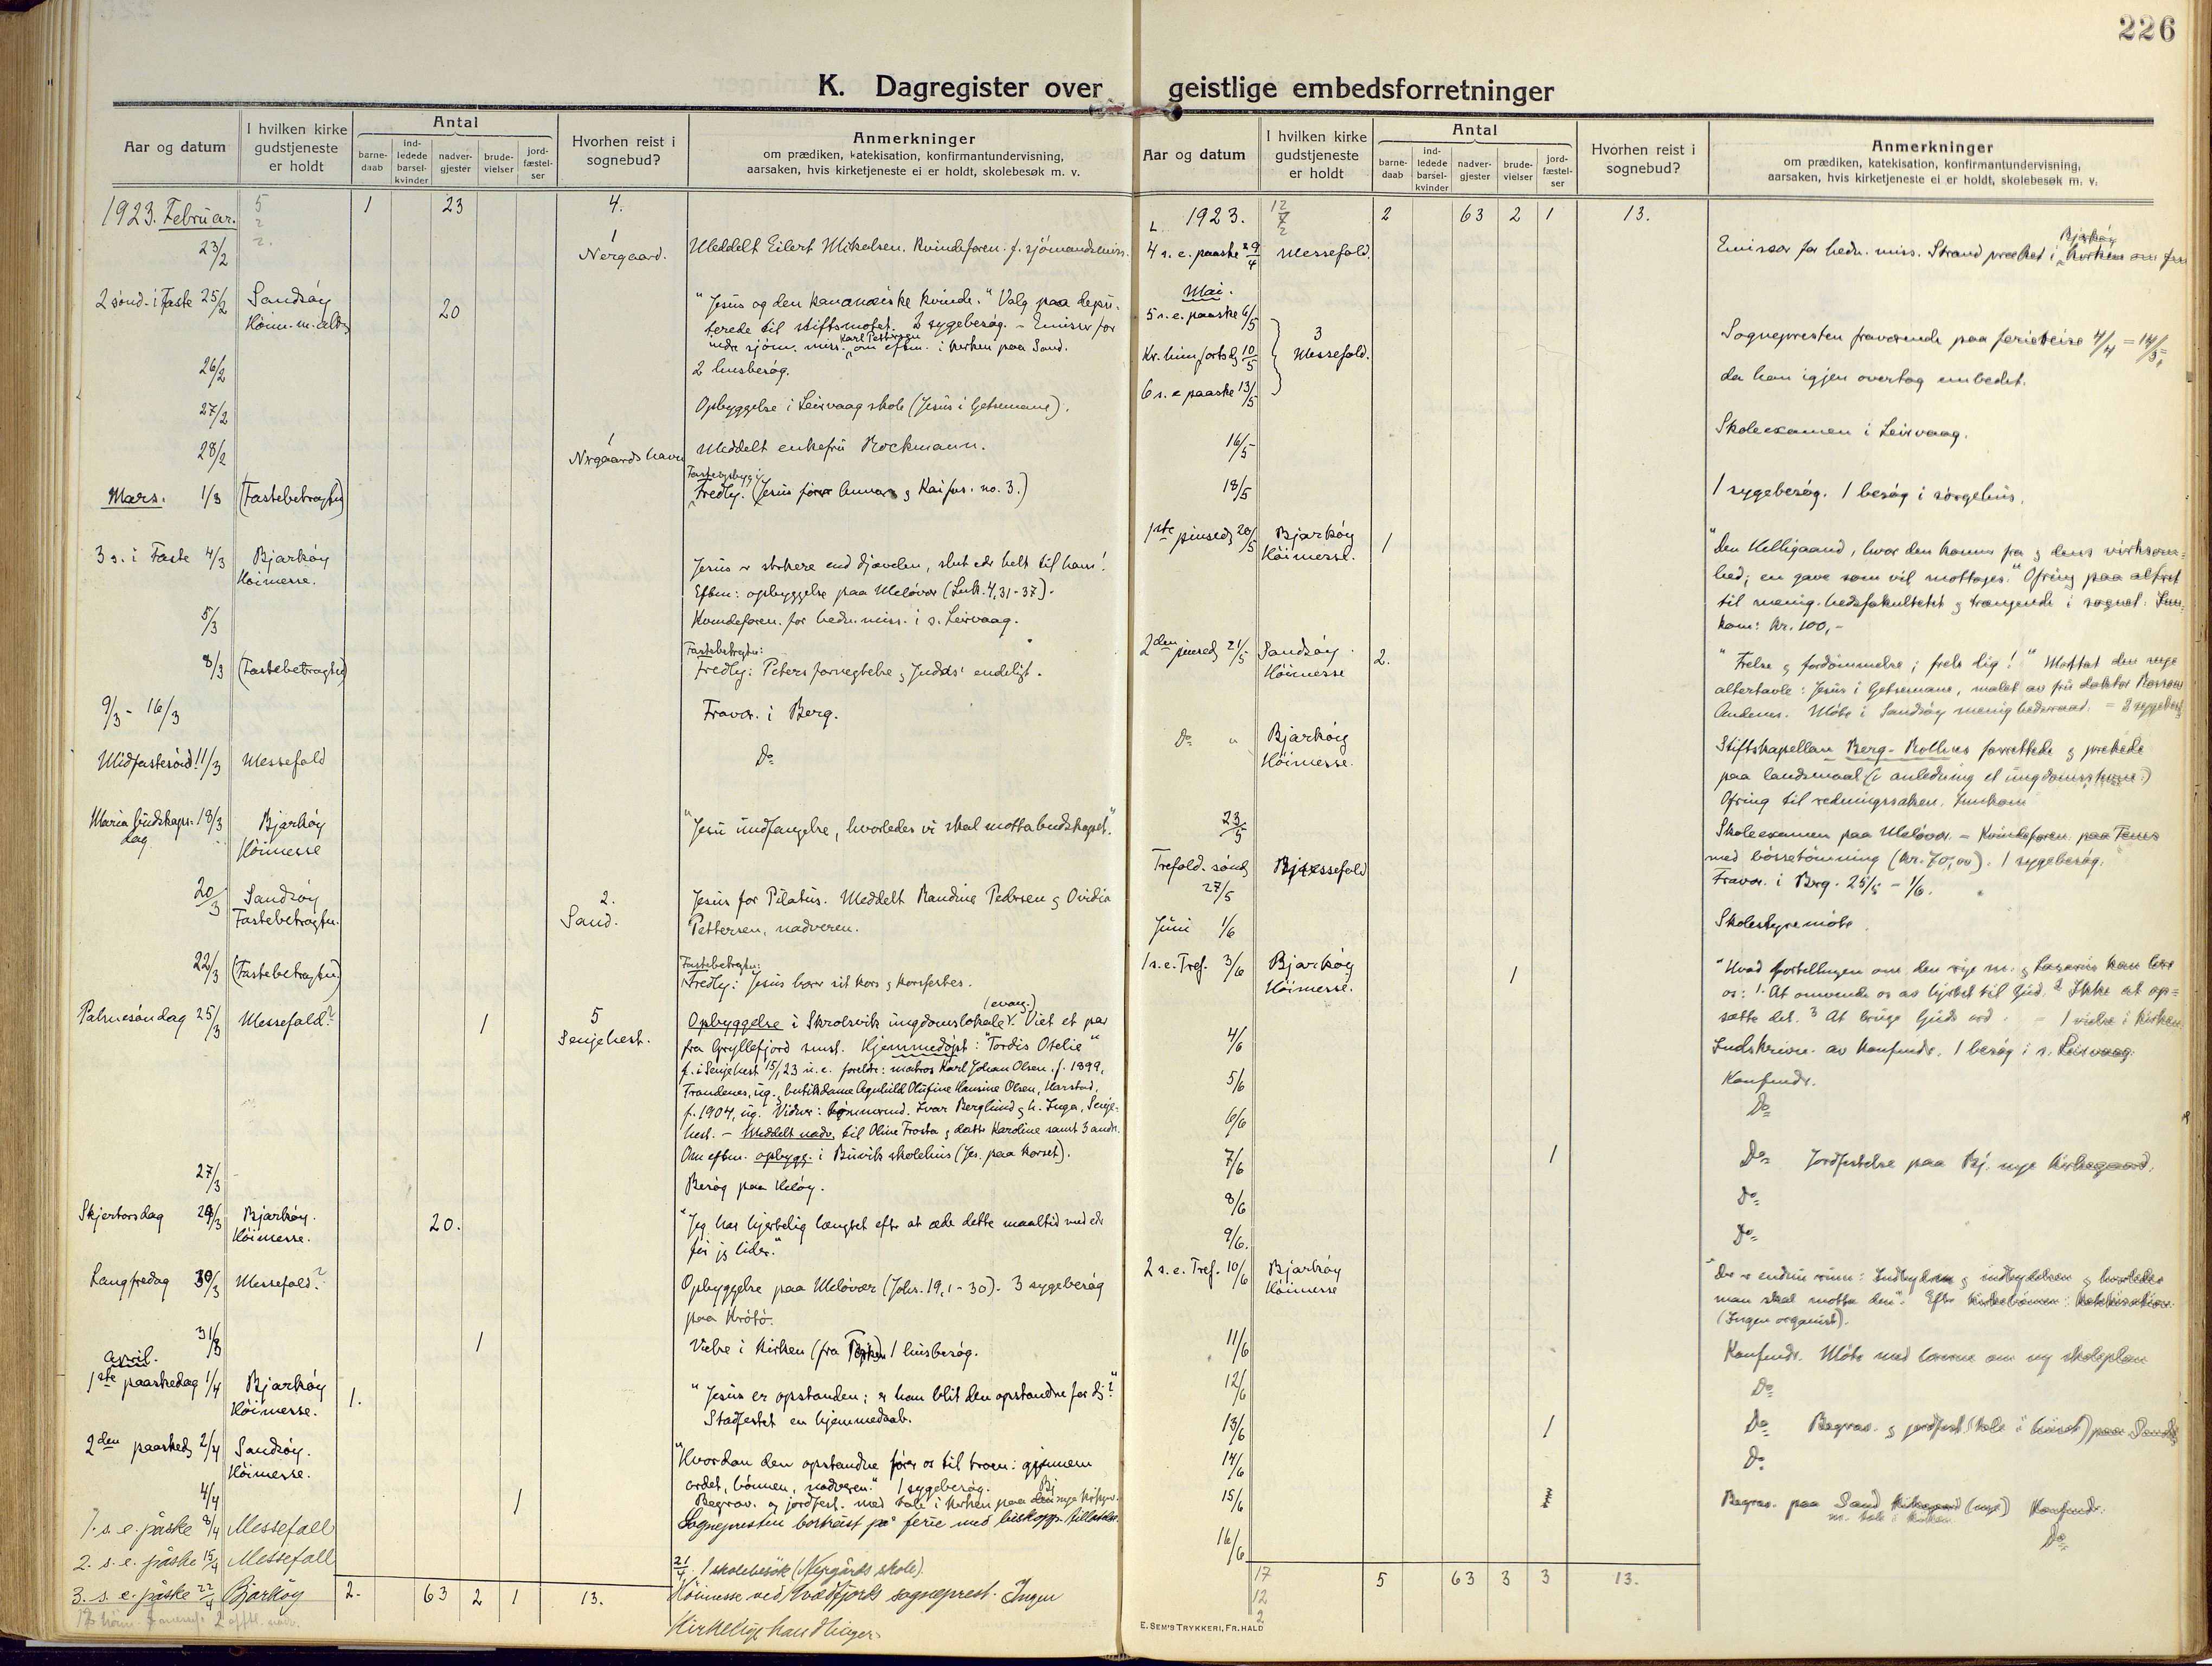 226
K. Dagregister over geistlige embedsforretninger
Aar og datum
I hvilken kirke gudstjeneste er holdt
Antal
barne-daab
ind-ledede barsel-kvinder
nadver-gjester
brude-vielser
jord-fæstel-ser
Hvorhen reist i sognebud?
Anmerkninger
om prædiken, katekisation, konfirmantundervisning,
aarsaken, hvis kirketjeneste ei er holdt, skolebesøk m. v.
1923. Februar. 5 2 2. 1 23 4.
23/2 1 Nergaard. Meddelt Eilert Mikalsen. Kvindeforen. f. sjömandsmiss.
2 sönd. i Faste 25/2 Sandsöy 20 "Jesus og den kananæiske kvinde." Valg paa depu-
terede til stiftsmötet. 2 sygebesög. - Emissær for
indre sjöm. miss. Karl Pettersen om efterm. i kirken paa Sand.
26/2 2 husbesög.
27/2 Opbyggelse i Leirvaag skole (Jesus i Getsemane).
28/2 1 Nergaards havn Meddelt enkefru Rockmann.
Mars. 1/3 (Fastebetragtn.) Fredly. (Jesus foran Annas og Kaifas. no. 3.)
3 s. i Faste 4/3 Bjarköy Höimesse. Jesus er sterkere end djævelen, slut eder helt til ham!
Efterm: opbyggelse paa Meløvær (Luk. 4, 31-37).
5/3 Kvindeforen. for hedn. miss. i s. Leirvaag.
8/3 (Fastebetragtn.) Fastebetragtn:
Fredly: Peters fornegtelse og Judas' endeligt.
9/3 - 16/3 Fravær. i Berg.
Midfastesönd. 11/3 Messefald Do
Maria budskaps-dag 18/3 Bjarköy Höimesse "Jesu undfangelse, hvorledes vi skal motta budskapet."
20/3 Sandsöy Fastebetragtn. 2. Sand. Jesus for Pilatus. Meddelt Randine Pedersen og Ovidia
Pettersen, nadveren.
22/3 (Fastebetragtn.) Fastebetragtn:
Fredly: Jesus bærer sit kors og korsfestes.
Palmesöndag 25/3 Messefald? 1 5 Senjehest. Opbyggelse i Skrolsvik ungdomslokale. (evang.) Viet et par
fra Gryllefjord smst. Hjemmedöpt: "Tordis Otelie"
f. i Senjehest 15/1 23 u. e. foreldre: matros Karl Johan Olsen, f. 1899,
Trondenes, ug. og butikdame Agnhild Olufine Hansine Olsen, Harstad,
f. 1904, ug. Ivar Berglund og h. Inga, Senje-
hest. - Meddelt nadv. til Oline Frosta og datter Karoline samt 3 andre.
Om efterm. opbygg. i Buvik skolehus (Jes. paa korset).
27/3 Besög paa Helöy.
Skjertorsdag 29/3 Bjarköy. Höimesse. 20. "Jeg har hjertelig længtet efter at æde dette maaltid med eder
för jeg lider."
Langfredag 30/3 Messefald? Opbyggelse paa Meløvær (Johs. 19, 1-30). 3 sygebesög
paa Krötö.
31/3 1 Vielse i kirken 1 husbesög.
April.
1ste paaskedag 1/4 Bjarköy Höimesse. 1. "Jesus er opstanden; er han blit den opstandne for dig?"
Stadfestet en hjemmedaab.
2den paasked. 2/4 Sandsöy. Höimesse. "Hvordan den opstandne förer os til troen: gjennem
ordet, bönnen, nadveren." 1 sygebesög.
4/4 1 Begrav. og jordfest. med tale i kirken paa Bj nye kirkegr.
1. s. e. påske 8/4 Messefall Sognepresten bortreist på ferie med biskopps tillatelse.
2. s. e. påske 15/4 Messefall
21/4 1 skolebesök (Nergårds skole).
3. s. e. påske 22/4 Bjarköy 2. 63 2 1 13. Höimesse ved Kvæfjords sogneprest. Ingen
kirkelige handlinger.
Aar og datum
I hvilken kirke gudstjeneste er holdt
Antal
barne-daab
ind-ledede barsel-kvinder
nadver-gjester
brude-vielser
jord-fæstel-ser
Hvorhen reist i sognebud?
Anmerkninger
om prædiken, katekisation, konfirmantundervisning,
aarsaken, hvis kirketjeneste ei er holdt, skolebesøk m. v.
1923. 2 63 2 1 13.
4 s. e. paaske 29/4 Messefald. Emissær for hedn. miss. Strand præket i Bjarköy
Mai.
5 s. e. paaske 6/5
Kr. himfartsdg 10/5 3 Messefald. Sognepresten fraværende paa feriereise 4/4 - 14/5,
6 s. e. paaske 13/5 da han igjen overtog embedet.
16/5 Skoleexamen i Leirvaag.
18/5 1 sygebesög. 1 besög i sörgehus.
1ste pinsedg 20/5 Bjarköy Höimesse. 1 "Den Helligaand, hvor den kommer fra og dens virksom-
hed; en gave som vil mottages." Ofring paa alteret
til menig.hedsfakultetet og trængende i sognet. Inn-
kom: kr. 100,-
2den pinsedg 21/5 Sandsöy. Höimesse 2. "Frelse og fordömmelse; frels dig!" Mottat den nye
altertavle: Jesus i Getsemane, malet av fru doktor
Andenes. Möte i Sandsöy menighedsraad. = 2 sygebesög
Do " Bjarköy Höimesse. Stiftskapellan Berg-Rollnes forrettede og prekede
paa landsmaal (i anledning et ungdomsstevne.)
Ofring til redningssaken. Innkom
23/5 Skoleexamen paa Meløvær. - Kvindeforen. paa
med bössetömning (kr. 70,00). 1 sygebesög.
Trefold. sönd. 27/5 Messefald Fravær. i Berg. 25/5 - 1/6.
Juni 1/6 Skolestyremöte
1 s. e. Tref. 3/6 Bjarköy Höimesse. 1 "Hvad fortellingen om den rige m. og Lazarus kan lære
os: 1. At omvende os av hjertet til Gud. 2 Ikke at op-
sætte det. 3 At bruge Guds ord. - 1 vielse i kirken.
4/6 Indskriven. av konfirmdr. 1 besög i s. Leirvaag.
5/6 Konfirmdr.
6/6 Do
7/6 1 Do Jordfestelse paa Bj. nye kirkegaard.
8/6 Do
9/6. Do
2 s. e. Tref. 10/6 Bjarköy Höimesse "Der er endnu rum: Indbyderen og indbydelsen og hvorledes
man skal motta den". Efter
(Ingen organist).
11/6 Konfirmdr. Möte med lærerne om ny skoleplan
12/6 Do
13/6 1 Do Begrav. og jordfest. (tale i huset) paa
14/6 Do
15/6 Begrav. paa Sand kirkegaard (nye) Konfirmdr.
m. tale i kirken
16/6 Do
17 12 2 5 63 3 3 13.
E. SEM'S TRYKKERI, FR.HALD